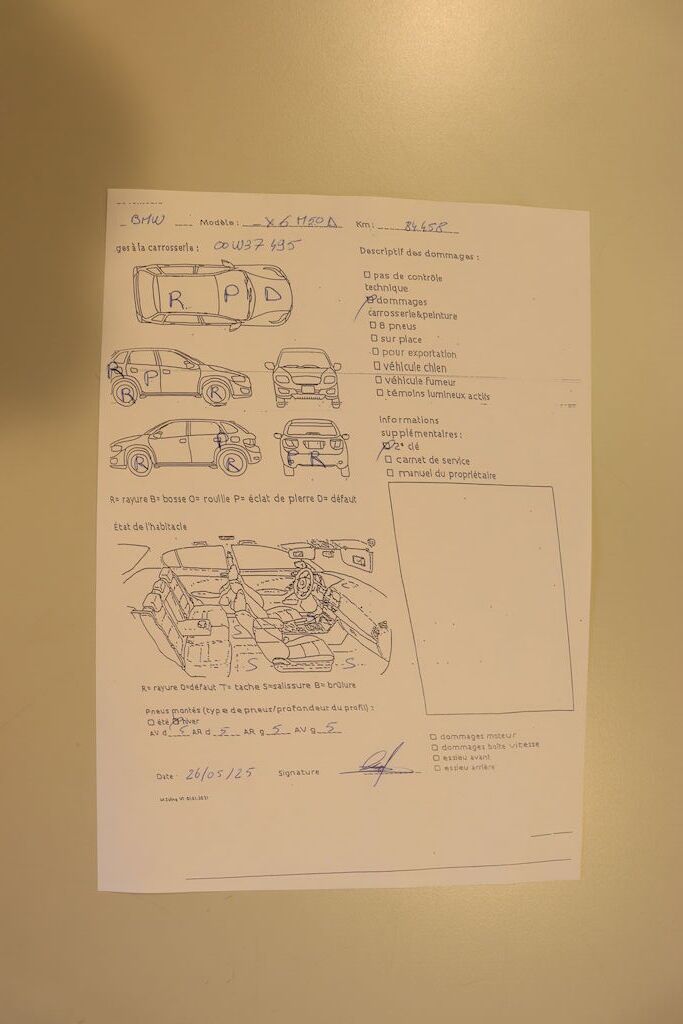 BMW Modèle : X6 M50D Km : 84.458
ges à la carrosserie : 00W37495
Descriptif des dommages :
pas de contrôle
technique
dommages
carrosserie&peinture
8 pneus
sur place
pour exportation
véhicule chien
véhicule fumeur
témoins lumineux actifs
R P D
R P
B R
P
R R
P R
Informations
supplémentaires :
2e clé
carnet de service
manuel du propriétaire
R= rayure B= bosse O= rouille P= éclat de pierre D= défaut
État de l'habitacle
S
S S
R= rayure D=défaut T= tache S=salissure B= brûlure
Pneus montés (type de pneus/profondeur du profil) :
été hiver
AV d 5 AR d 5 AR g 5 AV g 5
dommages moteur
dommages boîte vitesse
essieu avant
essieu arrière
Date 26/05/25 Signature